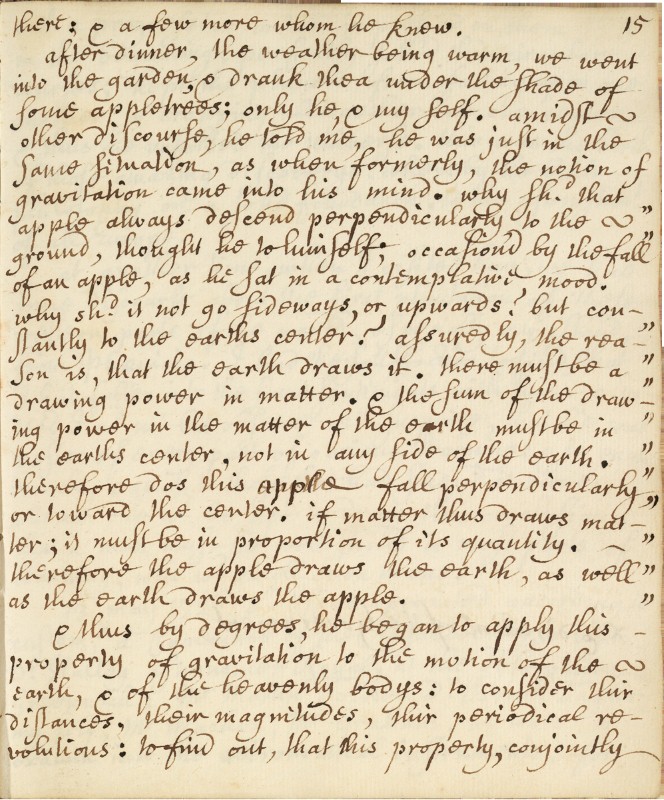 there: & a few more whom he knew. 15
after dinner, the weather being warm, we went
into the garden, & drank thea under the shade of
some appletrees; only he, & my self. amidst ~
other discourse, he told me, he was just in the
same situation, as when formerly, the notion of
gravitation came into his mind. why sh.d that
apple always descend perpendicularly to the ~ "
ground, thought he to himself; occasion'd by the fall
of an apple, as he sat in a contemplative mood.
why sh.d it not go sideways, or upwards? but con-
stantly to the earths center? assuredly, the rea- "
son is, that the earth draws it. there must be a "
drawing power in matter. & the sum of the draw- "
ing power in the matter of the earth must be in "
the earths center, not in any side of the earth. "
therefore dos this apple fall perpendicularly "
or toward the center. if matter thus draws mat- "
ter; it must be in proportion of its quantity. - "
therefore the apple draws the earth, as well "
as the earth draws the apple. "
& thus by degrees, he began to apply this -
property of gravitation to the motion of the ~
earth, & of the heavenly bodys: to consider thir
distances, their magnitudes, thir periodical re-
volutions: to find out, that this property, conjointly